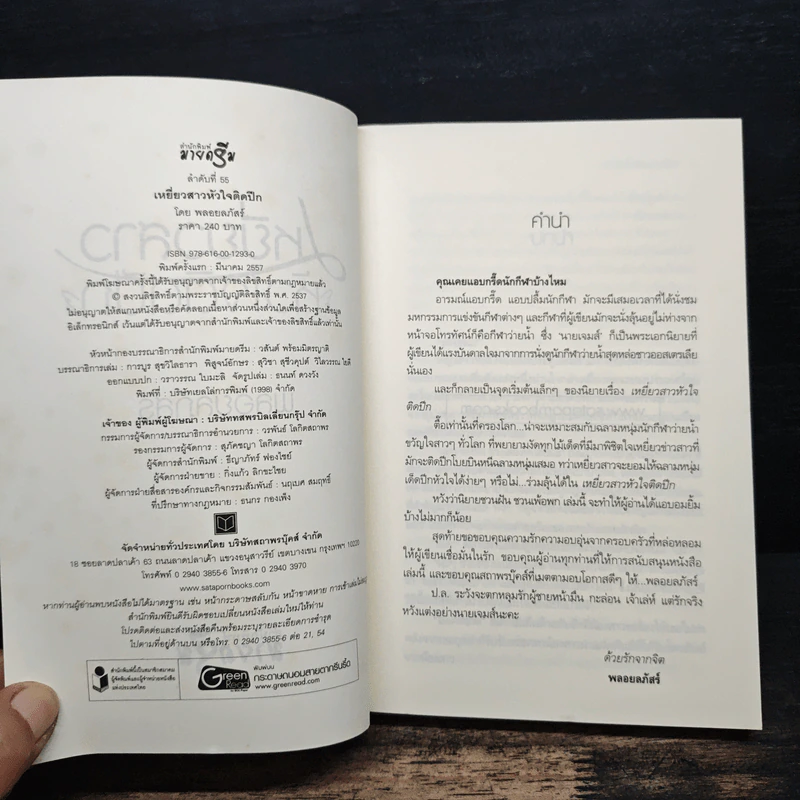 สำนักพิมพ์
มายดรีม
ลำดับที่ 55
เหยี่ยวสาวหัวใจติดปีก
โดย พลอยลภัสร์
ราคา 240 บาท
ISBN 978-616-00-1293-0
พิมพ์ครั้งแรก : มีนาคม 2557
พิมพ์โฆษณาครั้งนี้ได้รับอนุญาตจากเจ้าของลิขสิทธิ์ตามกฎหมายแล้ว
© สงวนลิขสิทธิ์ตามพระราชบัญญัติลิขสิทธิ์ พ.ศ. 2537
ไม่อนุญาตให้สแกนหนังสือหรือคัดลอกเนื้อหาส่วนหนึ่งส่วนใดเพื่อสร้างฐานข้อมูล
อิเล็กทรอนิกส์ เว้นแต่ได้รับอนุญาตจากสำนักพิมพ์และเจ้าของลิขสิทธิ์แล้วเท่านั้น
หัวหน้ากองบรรณาธิการสำนักพิมพ์มายดรีม : วสันต์ พร้อมมิตรญาติ
บรรณาธิการเล่ม : การบูร สุขวิไลธารา พิสูจน์อักษร : สุวิชา สุชีวคุปต์ วิไลวรรณ
ออกแบบปก : วราวรรณ ใบมะลิ จัดรูปเล่ม : ธนนท์ ดวงวัง
พิมพ์ที่ : บริษัทเยลโล่การพิมพ์ (1998) จำกัด
เจ้าของ ผู้พิมพ์ผู้โฆษณา : บริษัททสพรบิลเลี่ยนกรุ๊ป จำกัด
กรรมการผู้จัดการ/บรรณาธิการอำนวยการ : วรพันธ์ โลกิตสถาพร
รองกรรมการผู้จัดการ : สุภัคชญา โลกิตสถาพร
ผู้จัดการสำนักพิมพ์ : ธีญาภัทร์ ฟองไชย์
ผู้จัดการฝ่ายขาย : กิ่งแก้ว ลิกขะไชย
ผู้จัดการฝ่ายสื่อสารองค์กรและกิจกรรมสัมพันธ์ : นฤบศ สมฤทธิ์
ที่ปรึกษาทางกฎหมาย : ธนกร กองเพ็ง
จัดจำหน่ายทั่วประเทศโดย บริษัทสถาพรบุ๊คส์ จำกัด
18 ซอยลาดปลาเค้า 63 ถนนลาดปลาเค้า แขวงอนุสาวรีย์ เขตบางเขน กรุงเทพฯ 10220
โทรศัพท์ 0 2940 3855-6 โทรสาร 0 2940 3970
www.satapornbooks.com
หากท่านผู้อ่านพบหนังสือไม่ได้มาตรฐาน เช่น หน้ากระดาษสลับกัน หน้าขาดหาย การเข้าเล่ม
สำนักพิมพ์ยินดีรับผิดชอบเปลี่ยนหนังสือเล่มใหม่ให้ท่าน
โปรดติดต่อและส่งหนังสือคืนพร้อมระบุรายละเอียดการชำรุด
ไปตามที่อยู่ด้านบน หรือโทร. 0 2940 3855-6 ต่อ 21, 54
สำนักพิมพ์นี้เป็นสมาชิกสมาคม
ผู้จัดพิมพ์และผู้จำหน่ายหนังสือ
แห่งประเทศไทย
Green
Read
พิมพ์บน
กระดาษถนอมสายตากรีนรี้ด
www.greenread.com
คำนำ
คุณเคยแอบกรี๊ดนักกีฬาบ้างไหม
อารมณ์แอบกรี๊ด แอบปลื้มนักกีฬา มักจะมีเสมอเวลาที่ได้นั่งชม
มหกรรมการแข่งขันกีฬาต่างๆ และกีฬาที่ผู้เขียนมักจะนั่งลุ้นอยู่ไม่ห่างจาก
หน้าจอโทรทัศน์ก็คือกีฬาว่ายน้ำ ซึ่ง 'นายเจมส์' ก็เป็นพระเอกนิยายที่
ผู้เขียนได้แรงบันดาลใจมาจากการนั่งดูนักกีฬาว่ายน้ำสุดหล่อชาวออสเตรเลีย
นั่นเอง
และก็กลายเป็นจุดเริ่มต้นเล็กๆ ของนิยายเรื่อง เหยี่ยวสาวหัวใจ
ติดปีก
ตื๊อเท่านั้นที่ครองโลก...น่าจะเหมาะสมกับฉลามหนุ่มนักกีฬาว่ายน้ำ
ขวัญใจสาวๆ ทั่วโลก ที่พยายามงัดทุกไม้เด็ดที่มีมาพิชิตใจเหยี่ยวข่าวสาวที่
มักจะติดปีกโบยบินหนีฉลามหนุ่มเสมอ ทว่าเหยี่ยวสาวจะยอมให้ฉลามหนุ่ม
เด็ดปีกหัวใจได้ง่ายๆ หรือไม่...ร่วมลุ้นได้ใน เหยี่ยวสาวหัวใจติดปีก
หวังว่านิยายชวนฝัน ชวนเพ้อพก เล่มนี้ จะทำให้ผู้อ่านได้แอบอมยิ้ม
บ้างไม่มากก็น้อย
สุดท้ายขอขอบคุณความรักความอบอุ่นจากครอบครัวที่หล่อหลอม
ให้ผู้เขียนเชื่อมั่นในรัก ขอบคุณผู้อ่านทุกท่านที่ให้การสนับสนุนหนังสือ
เล่มนี้ และขอบคุณสถาพรบุ๊คส์ที่เมตตามอบโอกาสดีๆ ให้...พลอยลภัสร์
ป.ล. ระวังจะตกหลุมรักผู้ชายหน้ามึน กะล่อน เจ้าเล่ห์ แต่รักจริง
หวังแต่งอย่างนายเจมส์นะคะ
ด้วยรักจากจิต
พลอยลภัสร์